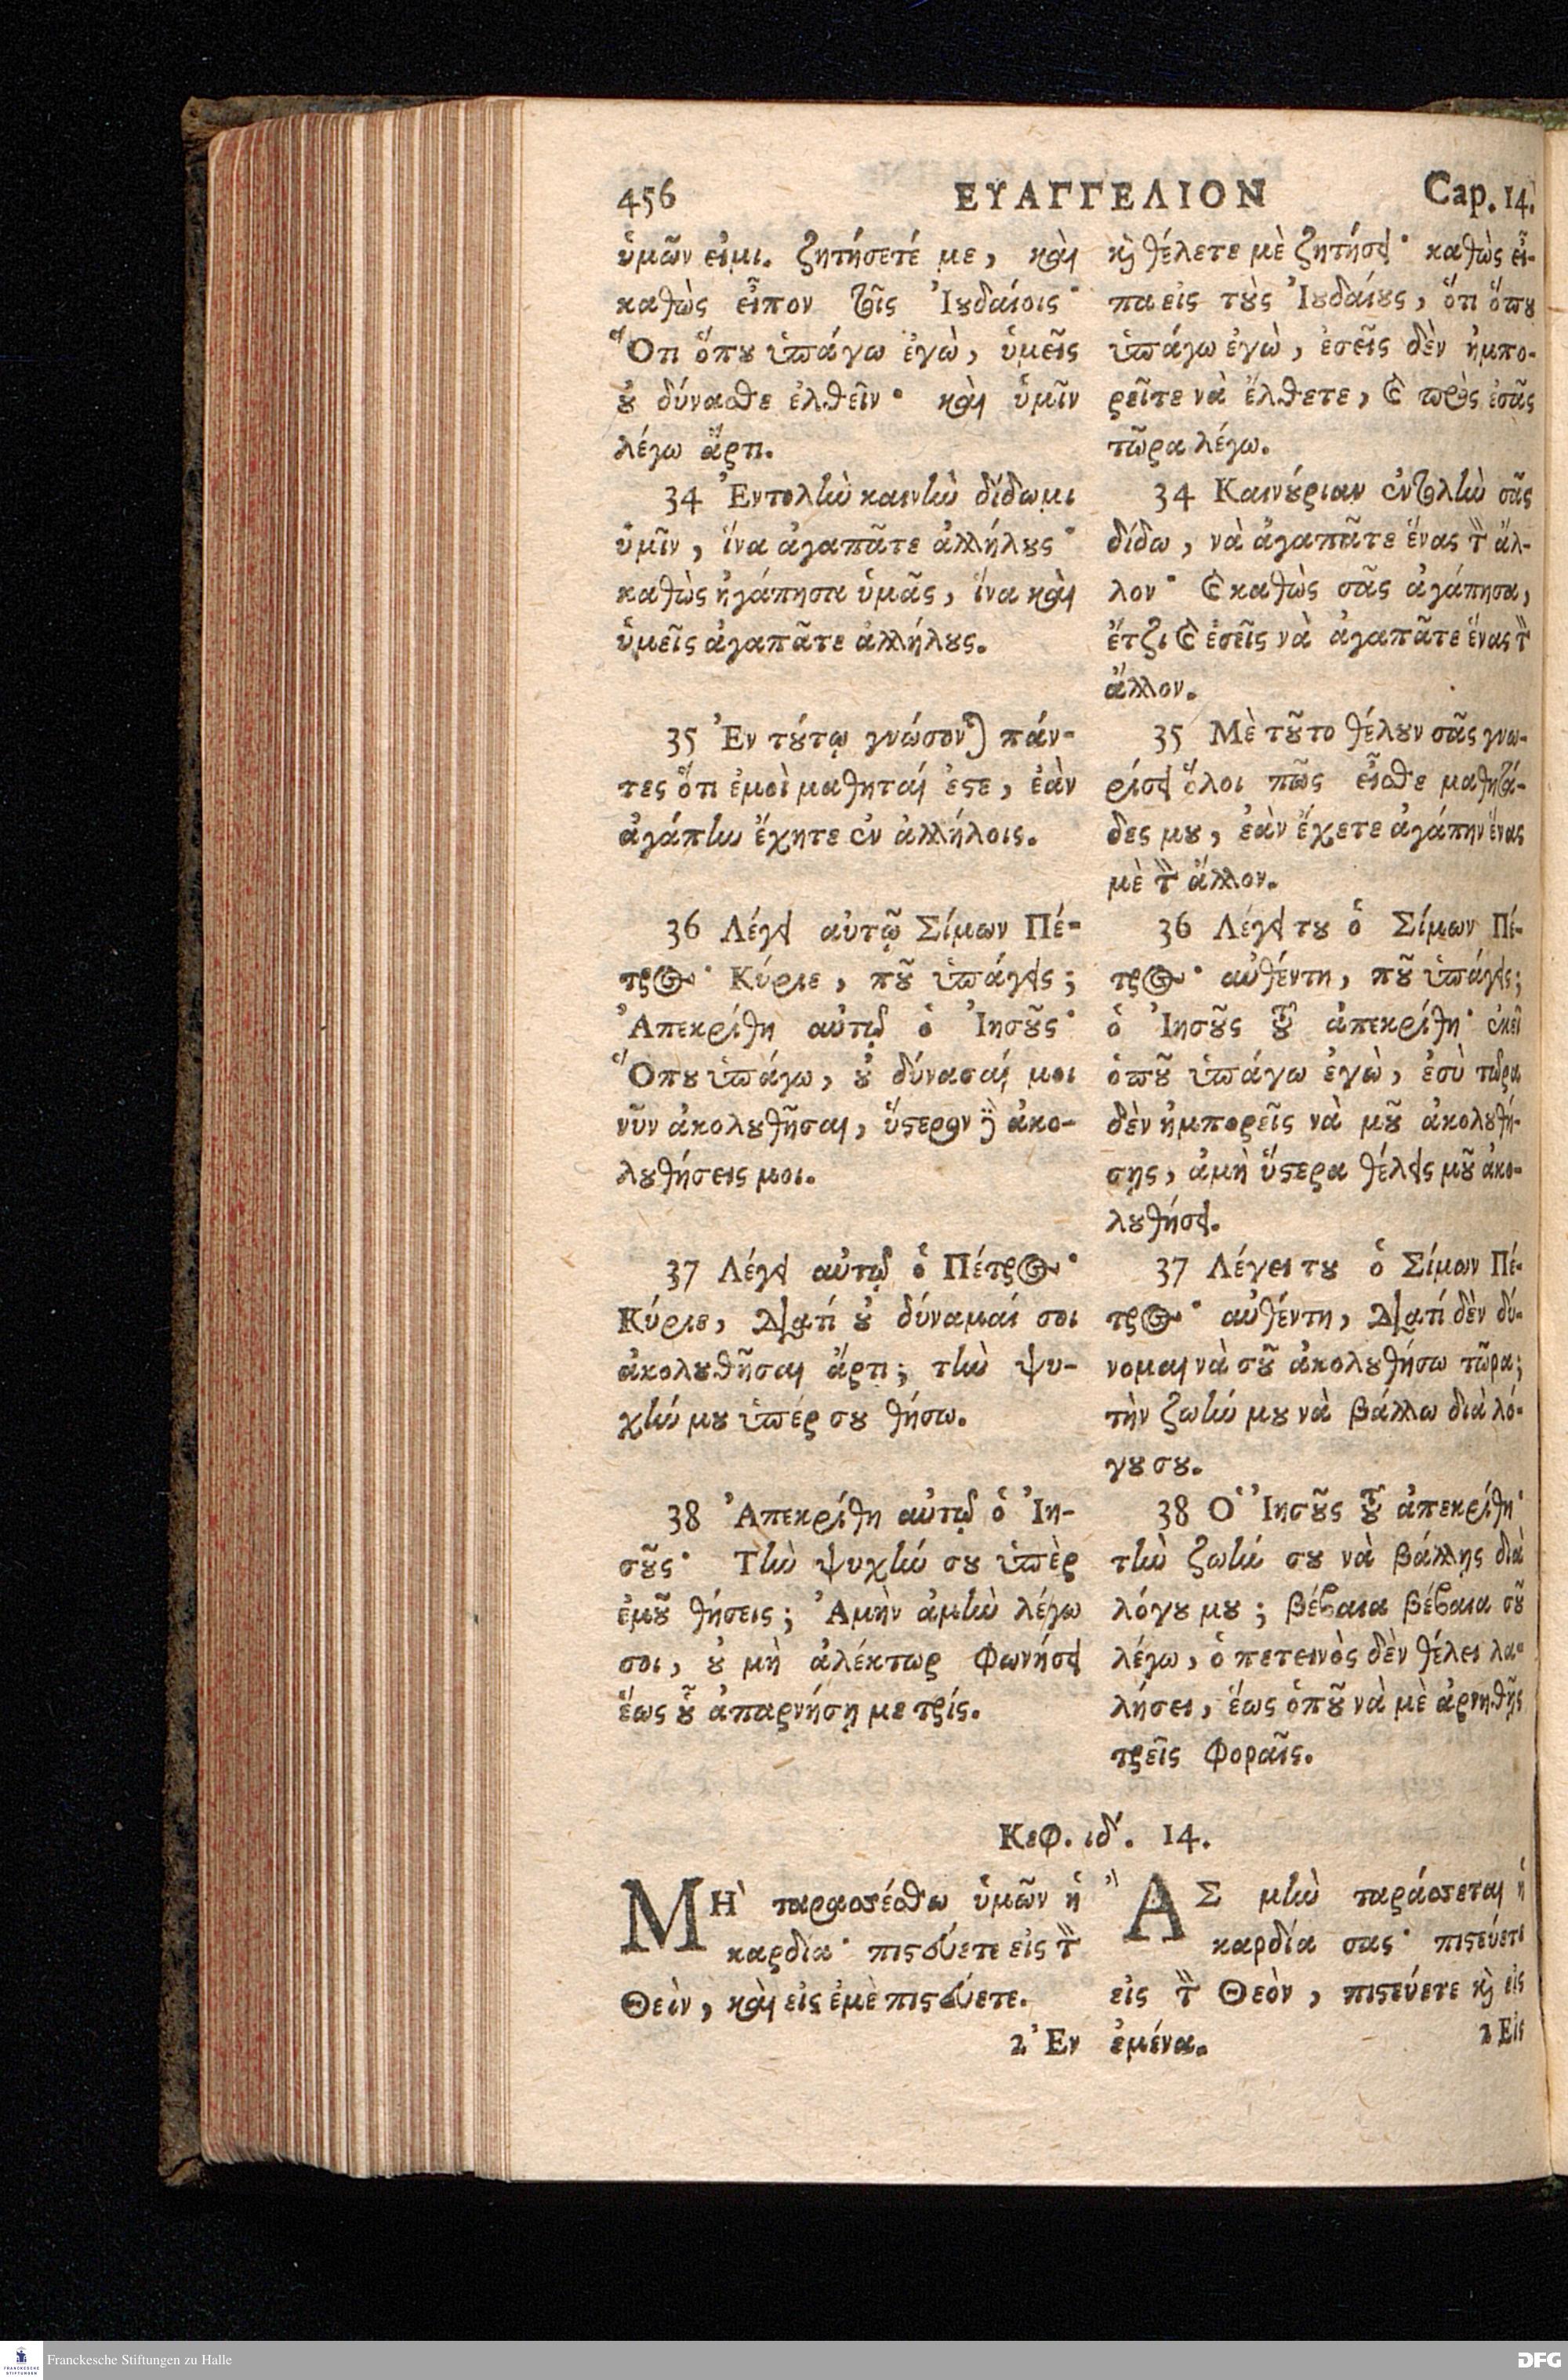 456 ΕΥΑΓΓΕΛΙΟΝ Cap. 14.
ὑμῶν εἰμι. ζητήσετέ με, καὶ
καθὼς εἶπον τοῖς Ἰουδαίοις·
Ὅτι ὅπου ὑπάγω ἐγὼ, ὑμεῖς
οὐ δύνασθε ἐλθεῖν· καὶ ὑμῖν
λέγω ἄρτι.
34 Ἐντολὴν καινὴν δίδωμι
ὑμῖν, ἵνα ἀγαπᾶτε ἀλλήλους·
καθὼς ἠγάπησα ὑμᾶς, ἵνα καὶ
ὑμεῖς ἀγαπᾶτε ἀλλήλους.
35 Ἐν τούτῳ γνώσονται πάν-
τες ὅτι ἐμοὶ μαθηταί ἐστε, ἐὰν
ἀγάπην ἔχητε ἐν ἀλλήλοις.
36 Λέγει αὐτῷ Σίμων Πέ-
τρος· Κύριε, ποῦ ὑπάγεις;
Ἀπεκρίθη αὐτῷ ὁ Ἰησοῦς·
Ὅπου ὑπάγω, οὐ δύνασαί μοι
νῦν ἀκολουθῆσαι, ὕστερον δὲ ἀκο-
λουθήσεις μοι.
37 Λέγει αὐτῷ ὁ Πέτρος·
Κύριε, διατί οὐ δύναμαί σοι
ἀκολουθῆσαι ἄρτι; τὴν ψυ-
χήν μου ὑπέρ σου θήσω.
38 Ἀπεκρίθη αὐτῷ ὁ Ἰη-
σοῦς· Τὴν ψυχήν σου ὑπὲρ
ἐμοῦ θήσεις; Ἀμὴν ἀμὴν λέγω
σοι, οὐ μὴ ἀλέκτωρ φωνήσει
ἕως οὗ ἀπαρνήσῃ με τρίς.
κỳ θέλετε μὲ ζητήσει· καθὼς εἶ-
πα εἰς τοὺς Ἰουδαίους, ὅτι ὅπου
ὑπάγω ἐγὼ, ἐσεῖς δὲν ἠμπο-
ρεῖτε νὰ ἔλθετε, καὶ πρὸς ἐσᾶς
τῶρα λέγω.
34 Καινούριαν ἐντολὴν σᾶς
δίδω, νὰ ἀγαπᾶτε ἕνας τὸν ἄλ-
λον· καὶ καθὼς σᾶς ἀγάπησα,
ἔτζι καὶ ἐσεῖς νὰ ἀγαπᾶτε ἕνας τὸν
ἄλλον.
35 Μὲ τοῦτο θέλουν σᾶς γνω-
ρίσει ὅλοι πῶς εἶσθε μαθητά-
δες μου, ἐὰν ἔχετε ἀγάπην ἕνας
μὲ τὸν ἄλλον.
36 Λέγει του ὁ Σίμων Πέ-
τρος· αὐθέντη, ποῦ ὑπάγεις;
ὁ Ἰησοῦς τοῦ ἀπεκρίθη· ἐκεῖ
ὁποῦ ὑπάγω ἐγὼ, ἐσὺ τῶρα
δὲν ἠμπορεῖς νὰ μοῦ ἀκολουθή-
σῃς, ἀμὴ ὕστερα θέλεις μοῦ ἀκο-
λουθήσει.
37 Λέγει του ὁ Σίμων Πέ-
τρος· αὐθέντη, διατί δὲν δύ-
νομαι νὰ σοῦ ἀκολουθήσω τῶρα;
τὴν ζωήν μου νὰ βάλλω διὰ λό-
γου σου.
38 Ὁ Ἰησοῦς τοῦ ἀπεκρίθη·
τὴν ζωήν σου νὰ βάλλῃς διὰ
λόγου μου; βέβαια βέβαια σοῦ
λέγω, ὁ πετεινὸς δὲν θέλει λα-
λήσει, ἕως ὁποῦ νὰ μὲ ἀρνηθῇς
τρεῖς φοραῖς.
Κεφ. ιδʹ. 14.
ΜῊ ταρασσέσθω ὑμῶν ἡ
καρδία· πιστεύετε εἰς τὸν
Θεὸν, καὶ εἰς ἐμὲ πιστεύετε.
2 Ἐν
ἊΣ μὴν ταράσσεται ἡ
καρδία σας· πιστεύετε
εἰς τὸν Θεὸν, πιστεύετε καὶ εἰς
ἐμένα.
2 Εἰς
FRANCKESCHE STIFTUNGEN
Franckesche Stiftungen zu Halle
DFG